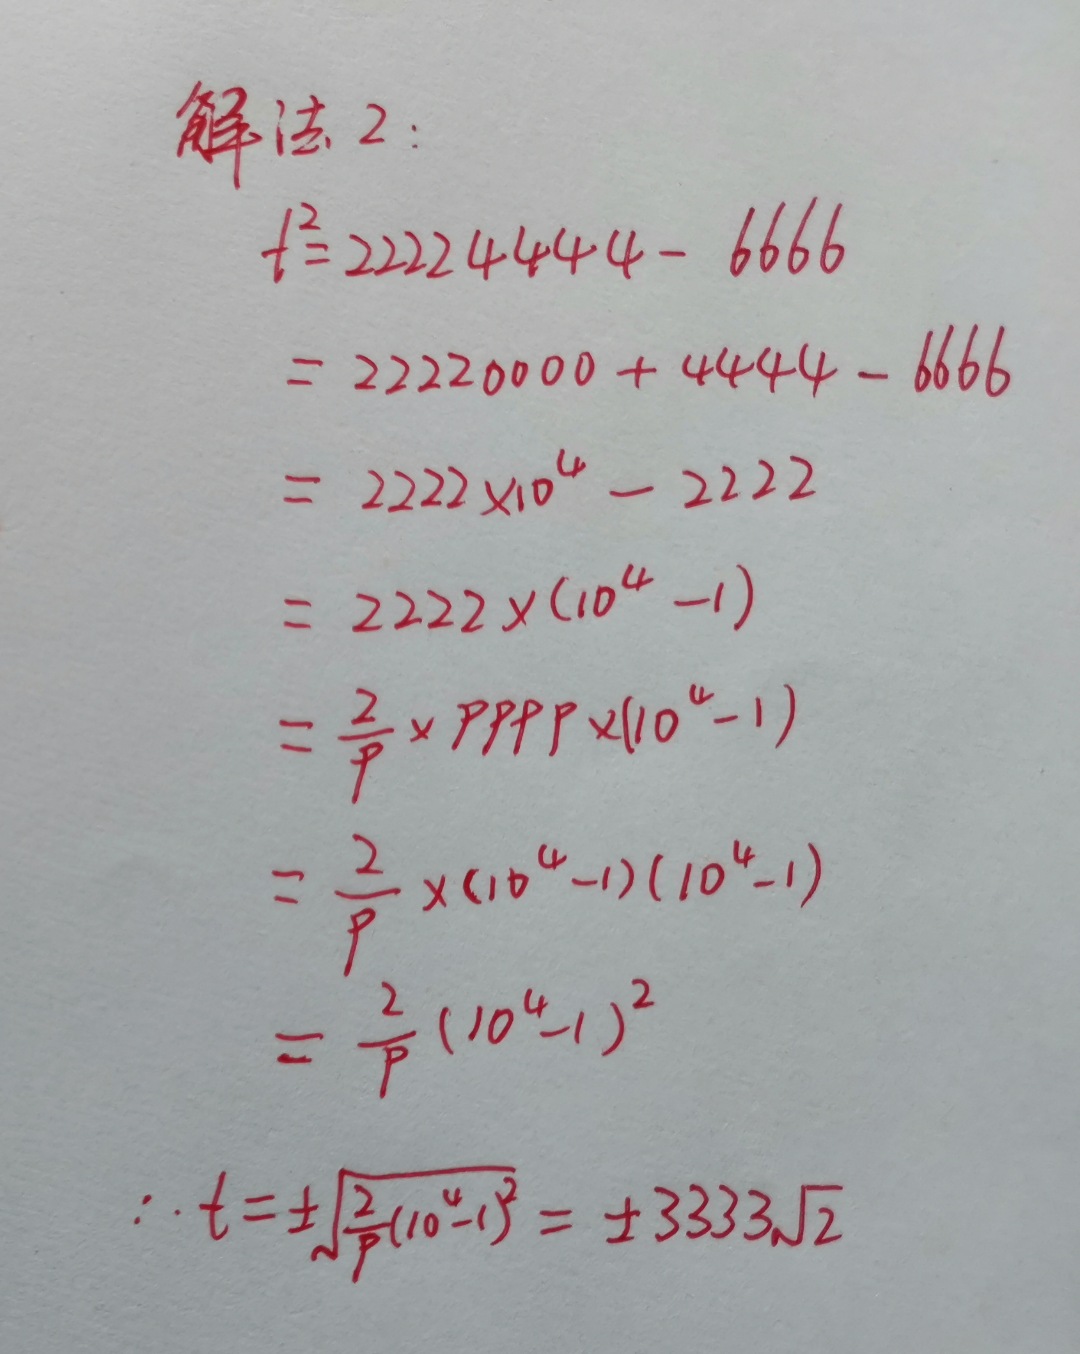 解法2:
t²=22224444-6666
=22220000+4444-6666
=2222×10⁴-2222
=2222×(10⁴-1)
=2/9×9999×(10⁴-1)
=2/9×(10⁴-1)(10⁴-1)
=2/9(10⁴-1)²
∴t=±√(2/9(10⁴-1)²)=±3333√2